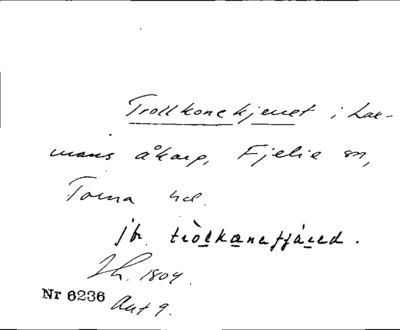 Trollkonekjenet i Lar-
mans åkarp, Fjelie sn,
Torna hd.
jfr. trölkanafjäred.
1804.
Nr 6236 Aut 9.